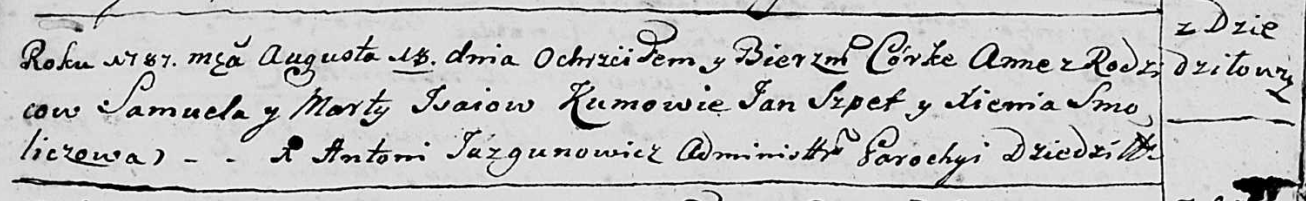 Roku 1787. mca Augusta 18. dnia Ochrzciłem y Bierzm Córke Anne z Rodzi
cow Samuela y Marty Isaiow Kumowie Jan Szpet y Xienia Smo
liczowa - - X Antoni Jazgunowicz Administr Parochyi Dziedziłk
z Dzie
dziłowicz